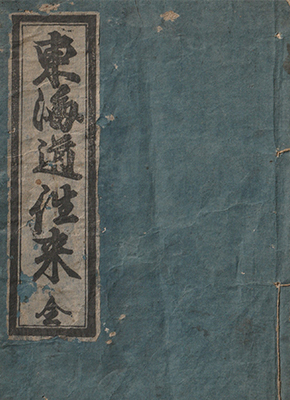 東海道往来全